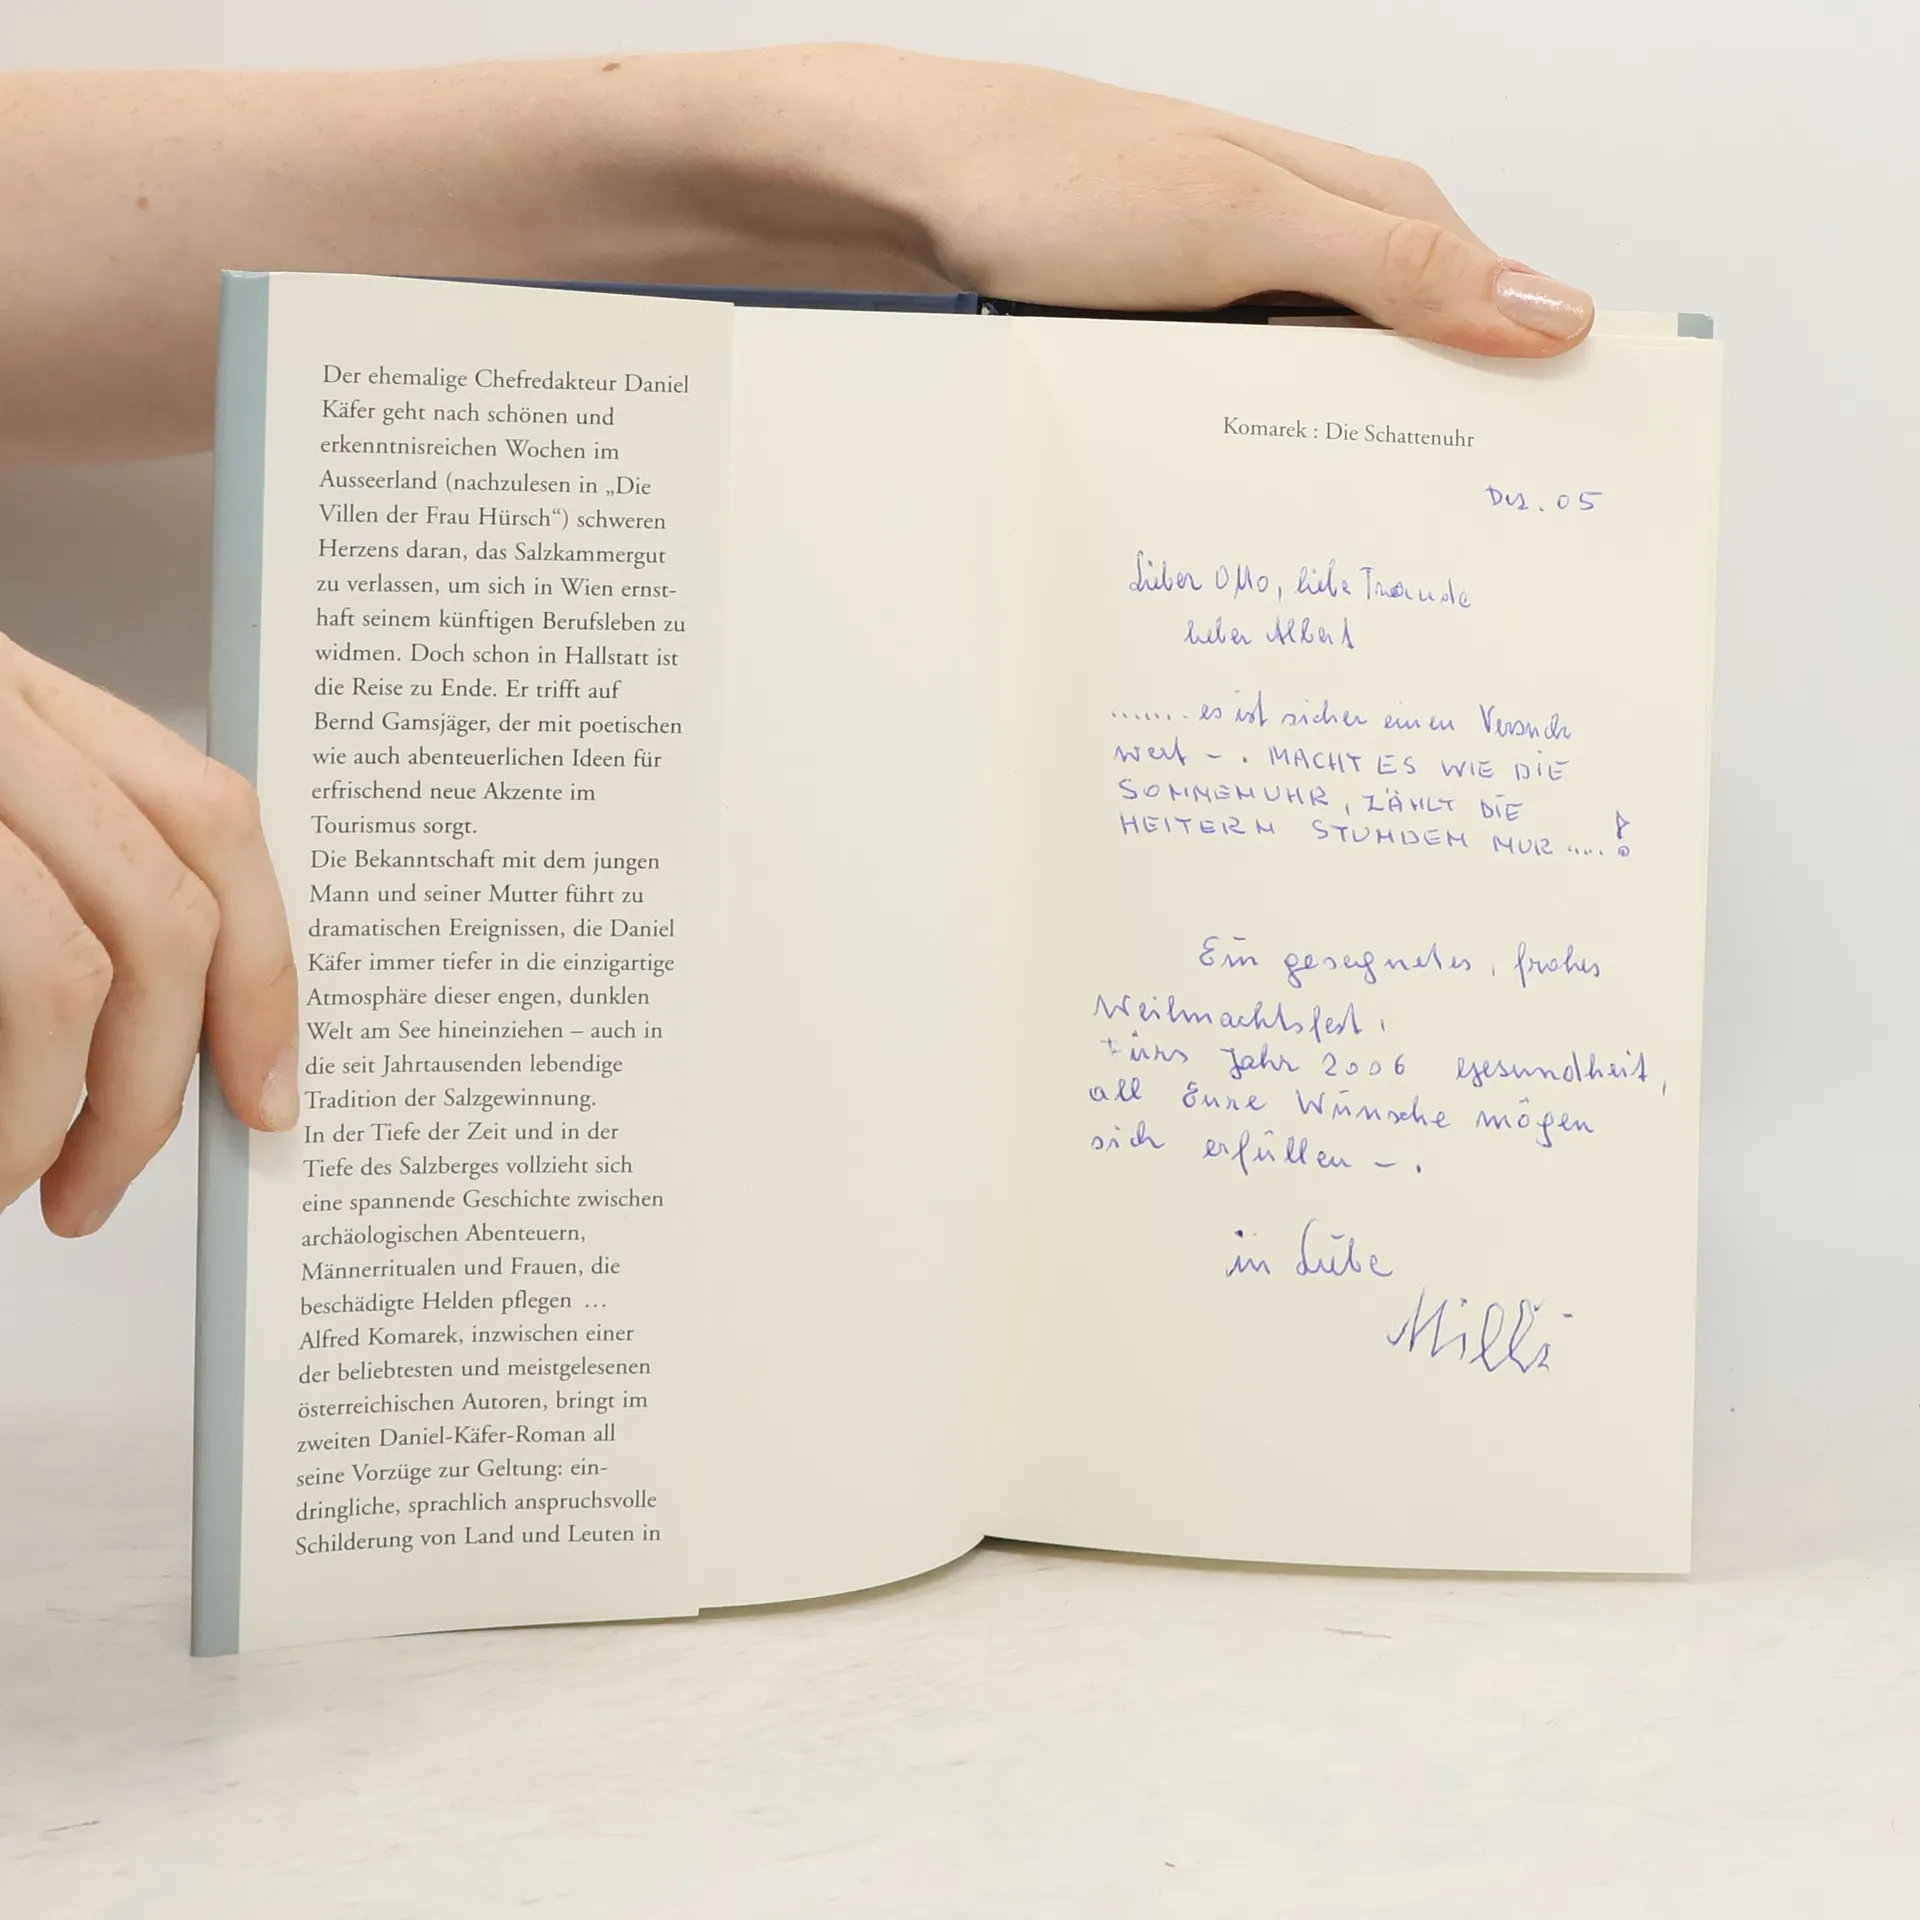 Der ehemalige Chefredakteur Daniel
Käfer geht nach schönen und
erkenntnisreichen Wochen im
Ausseerland (nachzulesen in „Die
Villen der Frau Hürsch“) schweren
Herzens daran, das Salzkammergut
zu verlassen, um sich in Wien ernst-
haft seinem künftigen Berufsleben zu
widmen. Doch schon in Hallstatt ist
die Reise zu Ende. Er trifft auf
Bernd Gamsjäger, der mit poetischen
wie auch abenteuerlichen Ideen für
erfrischend neue Akzente im
Tourismus sorgt.
Die Bekanntschaft mit dem jungen
Mann und seiner Mutter führt zu
dramatischen Ereignissen, die Daniel
Käfer immer tiefer in die einzigartige
Atmosphäre dieser engen, dunklen
Welt am See hineinziehen – auch in
die seit Jahrtausenden lebendige
Tradition der Salzgewinnung.
In der Tiefe der Zeit und in der
Tiefe des Salzberges vollzieht sich
eine spannende Geschichte zwischen
archäologischen Abenteuern,
Männerritualen und Frauen, die
beschädigte Helden pflegen …
Alfred Komarek, inzwischen einer
der beliebtesten und meistgelesenen
österreichischen Autoren, bringt im
zweiten Daniel-Käfer-Roman all
seine Vorzüge zur Geltung: ein-
dringliche, sprachlich anspruchsvolle
Schilderung von Land und Leuten in
Komarek : Die Schattenuhr
Dez. 05
Lieber Otto, liebe Traude
lieber Albert
....... es ist sicher einen Versuch
wert – . MACHT ES WIE DIE
SONNENUHR, ZÄHLT DIE
HEITERN STUNDEN NUR ..... !
Ein gesegnetes, frohes
Weihnachtsfest,
fürs Jahr 2006 Gesundheit,
all Eure Wünsche mögen
sich erfüllen – .
in Liebe
Milli